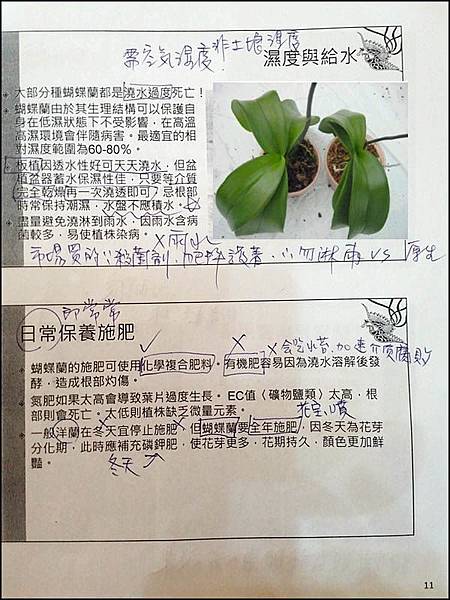 需空氣濕度非土壤濕度
濕度與給水
大部分種蝴蝶蘭都是澆水過度死亡！
蝴蝶蘭由於其生理結構可以保護自
身在低濕狀態下不受影響，在高溫
高濕環境會伴隨病害。最適宜的相
對濕度範圍為60-80%。
板植因透水性好可天天澆水，但盆
植盆器蓄水保濕性佳，只要等介質
完全乾燥再一次澆透即可？忌根部
時常保持潮濕，水盤不應積水。
盡量避免澆淋到雨水，因雨水含病
菌較多，易使植株染病。
X雨水
市場買的 殺菌劑、肥料 勿淋雨 VS 原生
即常常
日常保養施肥
X會 加速介質腐敗
蝴蝶蘭的施肥可使用化學複合肥料。有機肥容易因為澆水溶解後發
酵，造成根部灼傷。
氮肥如果太高會導致葉片過度生長。EC值〈礦物鹽類〉太高，根
部則會死亡。太低則植株缺乏微量元素。
一般洋蘭在冬天宜停止施肥，但蝴蝶蘭要全年施肥，因冬天為花芽
分化期，此時應補充磷鉀肥，使花芽更多，花期持久，顏色更加鮮
豔。
冬天
11